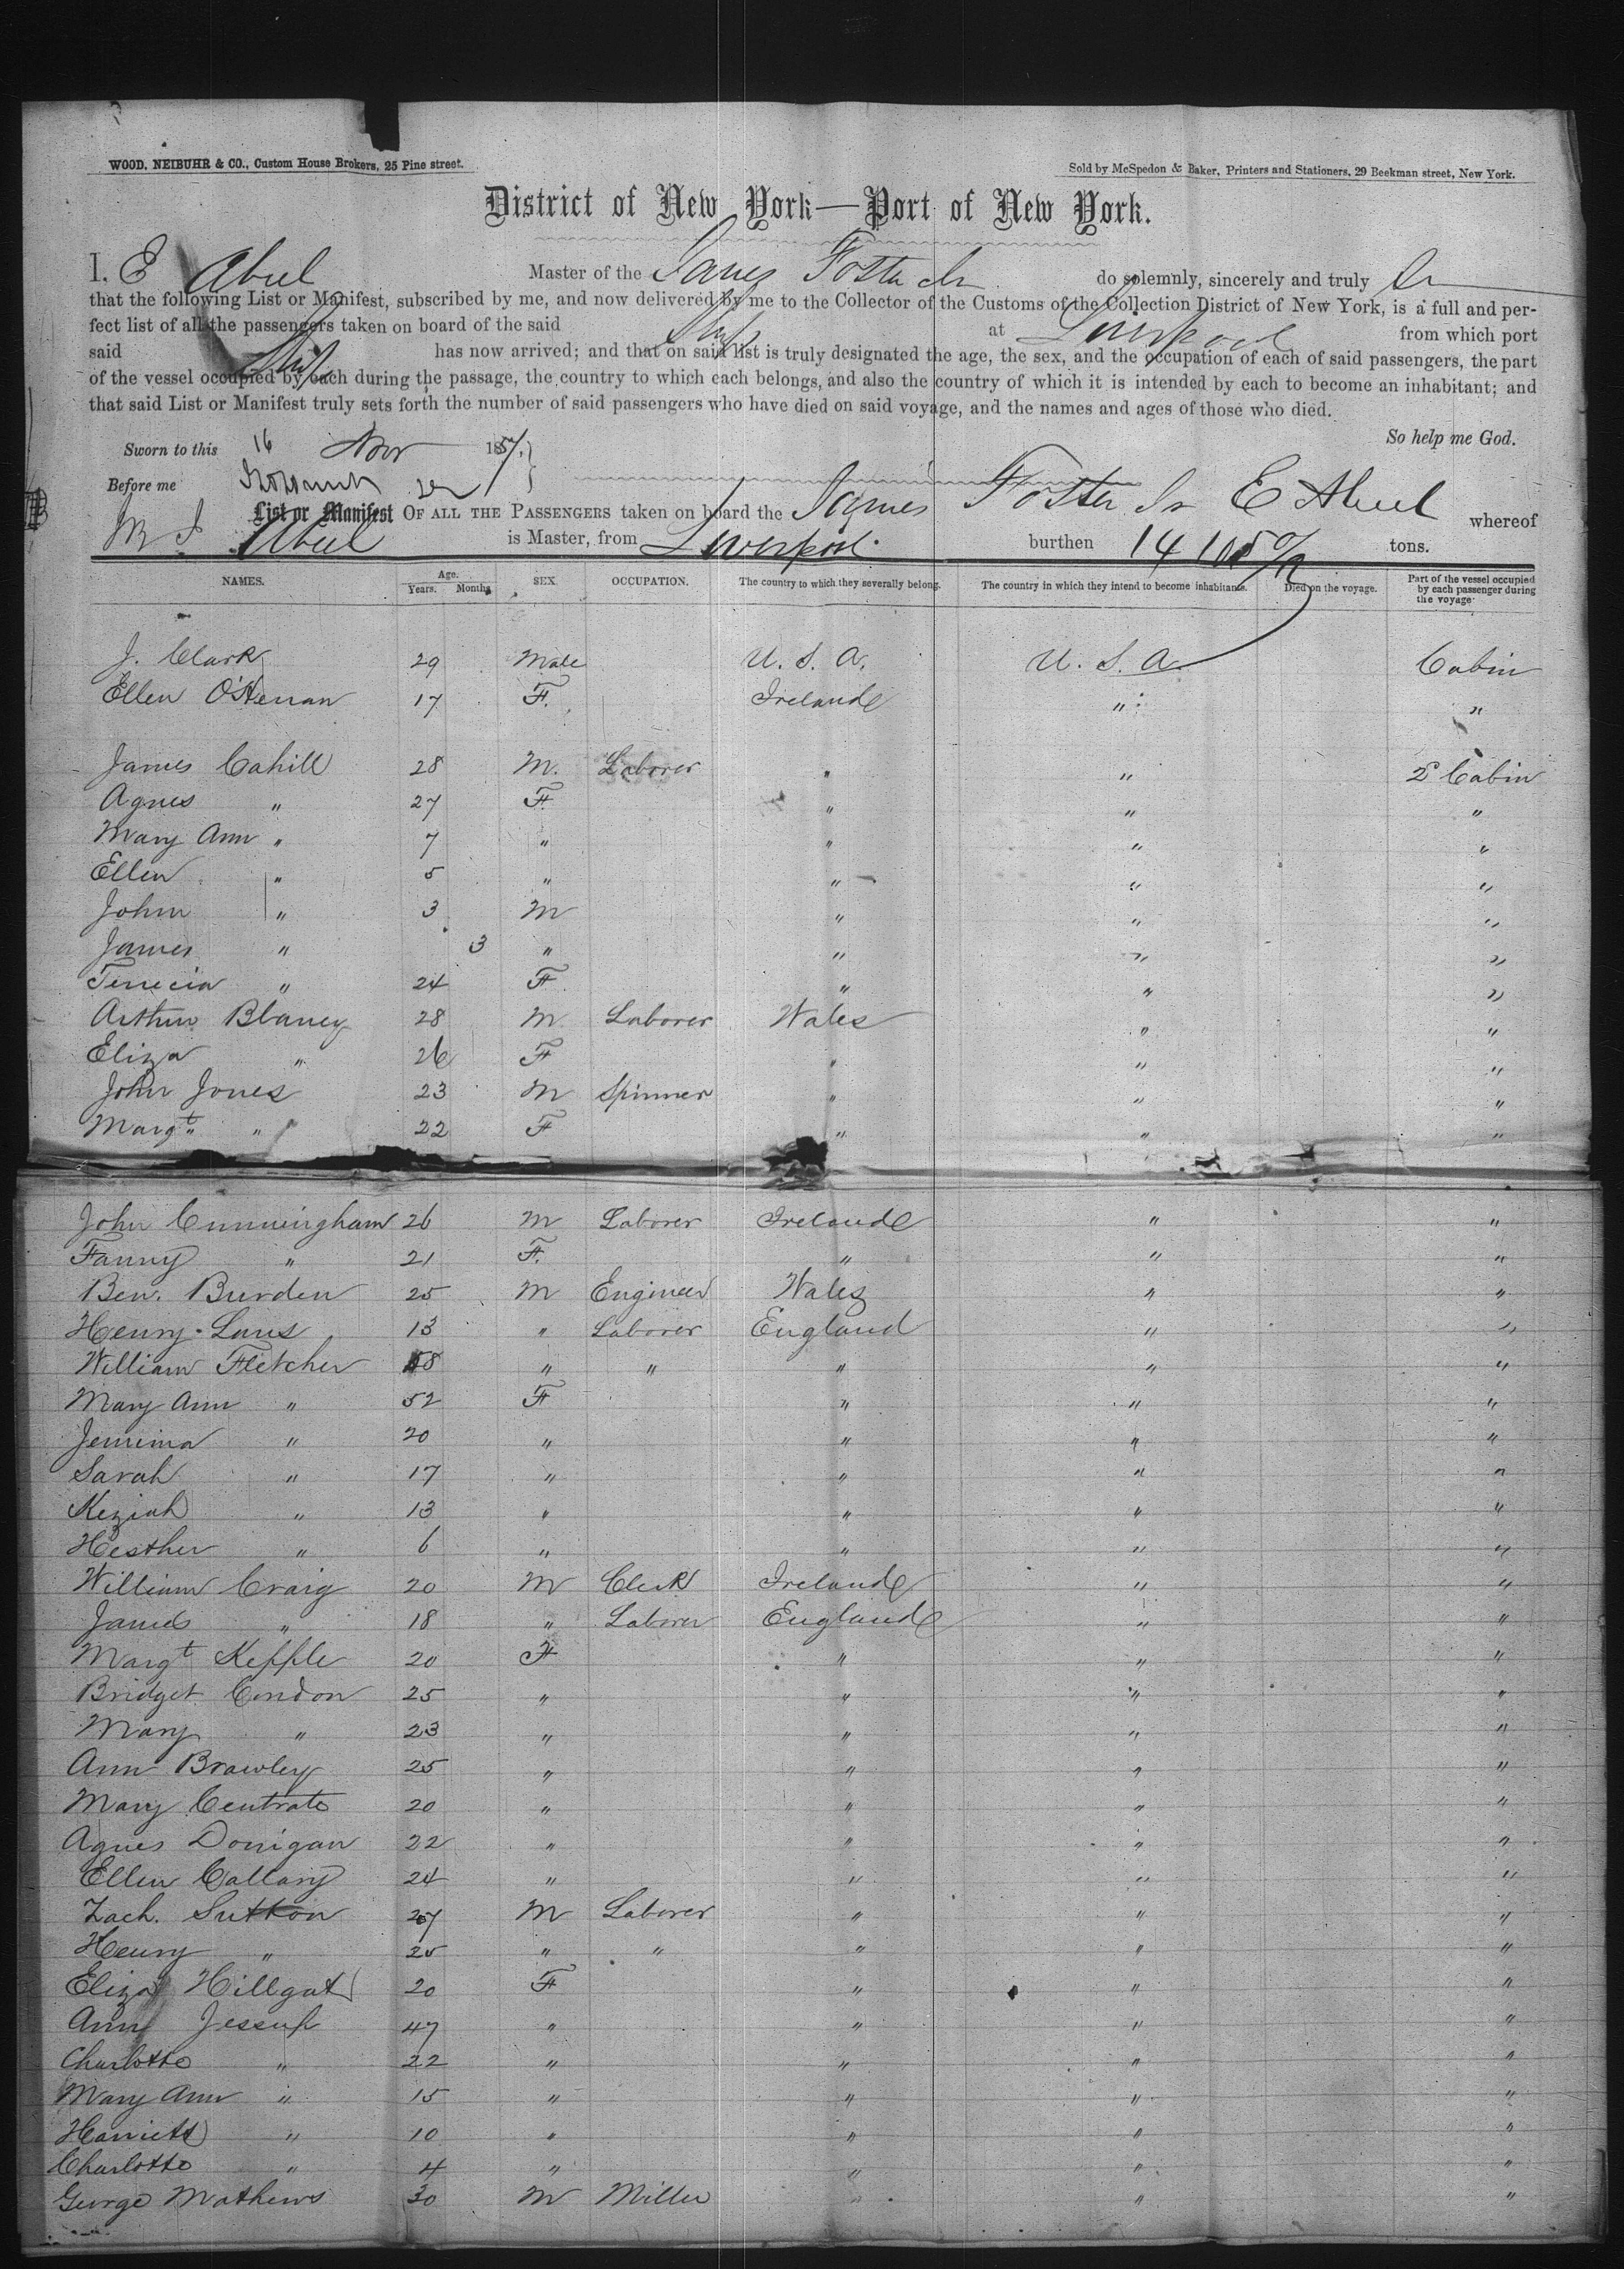 WOOD, NEIBUHR & CO., Custom House Brokers, 25 Pine street.
Sold by McSpedon & Baker, Printers and Stationers, 29 Beekman street, New York.
District of New York—Port of New York.
I, E Abeel Master of the James Foster Jr do solemnly, sincerely and truly
that the following List or Manifest, subscribed by me, and now delivered by me to the Collector of the Customs of the Collection District of New York, is a full and per-
fect list of all the passengers taken on board of the said Ship at Liverpool from which port
said Ship has now arrived; and that on said list is truly designated the age, the sex, and the occupation of each of said passengers, the part
of the vessel occupied by each during the passage, the country to which each belongs, and also the country of which it is intended by each to become an inhabitant; and
that said List or Manifest truly sets forth the number of said passengers who have died on said voyage, and the names and ages of those who died.
So help me God.
Sworn to this 16 Nov 1857.
Before me
List or Manifest OF ALL THE PASSENGERS taken on board the James Foster Jr E Abeel whereof
Abeel is Master, from Liverpool burthen tons.
NAMES. Age. Years. Months. SEX. OCCUPATION. The country to which they severally belong. The country in which they intend to become inhabitants. Died on the voyage. Part of the vessel occupied by each passenger during the voyage
J. Clark 29 Male U. S. A. U. S. A Cabin
Ellen 17 F. Ireland " "
James Cahill 28 M. Laborer " " 2d Cabin
Agnes " 27 F. " " "
Mary Ann " 7 " " " "
Ellen " 5 " " " "
John " 3 M " " "
James " 3 " " " "
" 24 F. " " "
Arthur Blaney 28 M. Laborer Wales " "
Eliza " 26 F " " "
John Jones 23 M Spinner " " "
Margt " 22 F " " "
John Cunningham 26 M Laborer Ireland " "
Fanny " 21 F. " " "
Ben. Burden 25 M Engineer Wales " "
Henry 13 " Laborer England " "
William Fletcher 58 " " " " "
Mary Ann " 52 F " " "
Jemima " 20 " " " "
Sarah " 17 " " " "
Keziah " 13 " " " "
Hesther " 6 " " " "
William Craig 20 M Clerk Ireland " "
James " 18 " Laborer England " "
Margt Kepple 20 F " " "
Bridget Condon 25 " " " "
Mary " 23 " " " "
Ann Brawley 25 " " " "
Mary Centrato 20 " " " "
Agnes Donigan 22 " " " "
Ellen Callary 24 " " " "
Zach. Sutton 27 M Laborer " " "
Henry " 25 " " " " "
Eliza Hillgat 20 F " " "
Ann Jessup 47 " " " "
Charlotte " 22 " " " "
Mary Ann " 15 " " " "
Harriett " 10 " " " "
Charlotte " 4 " " " "
George Mathews 30 M Miller " " "